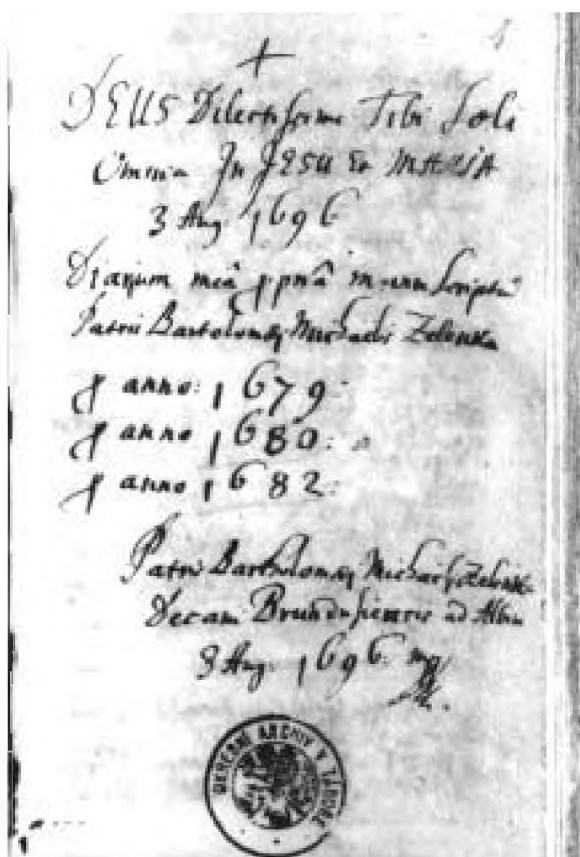 1
+
DEUS Dilectissime Tibi Soli
Omnia In JESU Et MARIA
3 Aug. 1696
Diarium meâ ꝓpriâ manu scriptũ
Patris Bartolomęi Michaelis Zelenka
ꝓ anno: 1679:
ꝓ anno 1680:
ꝓ anno 1682:
Patris Bartholomęi Michaelis Zelenka
Decani Brundusiensis ad Albim
3 Aug: 1696: mp
OKRESNÍ ARCHIV V TÁBOŘE
1